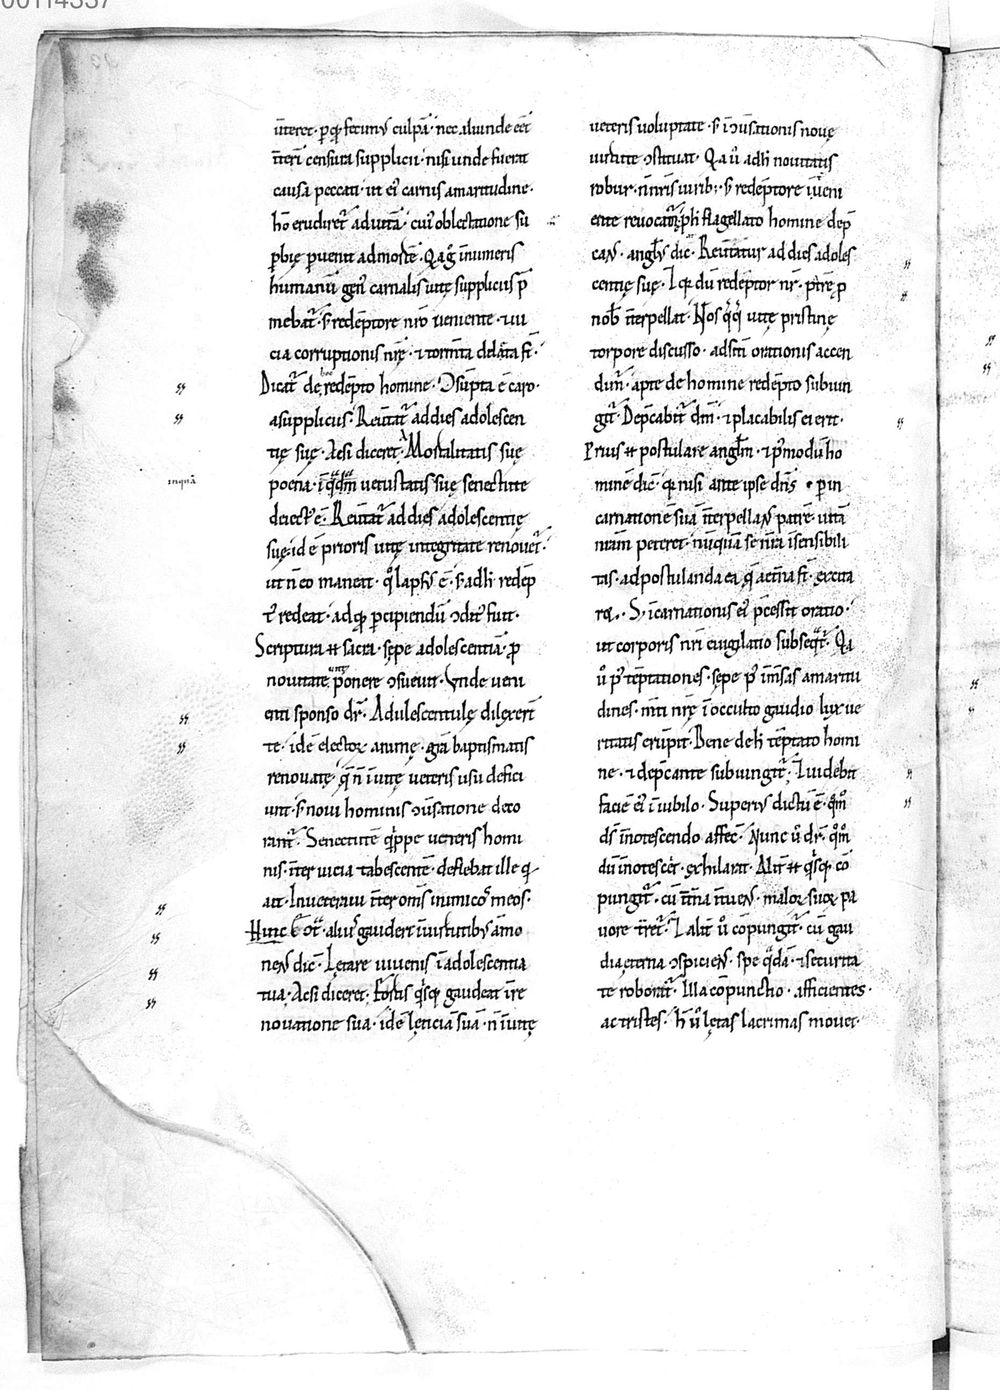 00114337
ūteret · ꝑ qđ fecim᷒ culpā · nec aliunde eēt
īteri censura supplicii · nisi unde fuerat
causa peccati · ut ei᷒ carnis amaritudine ·
hō erudiret᷑ ad uitā · cui᷒ oblectatione su
ꝑbię ꝑuenit ad mortē · Qa g̊ innumeris
humanū gen᷒ carnalis uitę suppliciis p̄
mebat᷑ · s; redēptore nr̄o ueniente · ui
cia corruptionis nr̄ę · ⁊ torm̄ta delata st̄ ·
Dicat᷑ de hoc redēpto homine · Ↄsūpta ē caro ·
a suppliciis · Reūtat᷑ ad dies adolescen
tię suę · Ac si diceret᷑ · Mortalitatis suę
poena · ī qđdm uetustatis suę senectute
deiect᷒ ē · Reūtat᷑ ad dies adolescentię
inquā
suę · id ē prioris uitę integritate renouet᷑ ·
ut n̄ eo maneat · qͦ lapsus ē · s; ad h̄ redēp
t᷒ redeat · ad qđ ꝑcipiendū ↄdit᷒ fuit ·
Scriptura ⁊ sacra · sępe adolescentiā · ꝑ
nouitate ponere ↄsueuit · Unde ueni
enti sponso dr̄ · Adulescentulę dilexer̄t
te · id ē electorꝝ animę · gr̄a baptismatis
renouatę · q̄ n̄ ī uitę ueteris usu defici
unt · s; noui hominis ↄūsatione deco
rant᷑ · Senectutē q̍ppe ueteris homi
nis · īter uicia tabescentē · deflebat ille q̍
ait · Inueteraui īter om̄s inimicos meos ·
Hinc ē ōt̄ · aliu᷒ gauderi ī uirtutib᷒ amo
nens dic̄ · Lętare iuuenis ī adolescentia
tua · Ac si diceret · Fortis q̍sq; gaudeat ī re
nouatione sua · id ē lęnciā suā · n̄ ī uitę
ueteris uoluptate · s; ī ↄūsationis nouę
uirtute ↄstituat · Qa ū ad h̄ nouitatis
robur · n̄ nr̄is uirib; · s; redēptore iūeni
ente reuocam᷑ · ph̄ flagellato homine dep̄
cans · angl᷒s dic̄ · Reūtatur ad dies adoles
centię suę · I qđ dū redēptor nr̄ · ptrē ꝑ
nob̄ īterpellat · Nos q̊q; uitę pristinę
torpore discusso · ad stī orationis accen
dim᷒ · apte de homine redēpto subiun
git᷑ · Dep̄cabit᷑ dm̄ · ⁊ placabilis ei erit ·
Prius ⁊ postulare anglm̄ · ⁊ p᷒modū ho
minē dic̄ · qđ nisi ante ipse dn̄s · ꝑ in
carnationē suā īterpellans patrē · uitā
nr̄am peteret · nūquā se nr̄a īsensibili
tas · ad postulanda ea q̄ aet̄na st̄ · excita
ret · S; īcarnationis ei᷒ p̄cessit oratio ·
ut corporis nr̄i euigilatio subseq̄ret᷑ · Qa
ū p᷒ tēptationes · sępe p᷒ īm̄sas amaritu
dines · m̄ti nr̄ę ī occulto gaudio lux ue
ritatis erūpit · Bene de h̄ tēptato homi
ne · ⁊ dep̄cante subiungit᷑ · ⁊ uidebit
faciē ei᷒ ī iubilo · Superi᷒ dictū ē · qm̊
ds̄ īnotescendo afficit · Nunc ū dr̄ · qm̊
dū īnotescer̄ · exhilarat · Alit̄ ⁊ q̍sq; cō
pungit᷑ · cū īt̄na ītuens · malorꝝ suorꝝ pa
uore t̄ret᷑ · ⁊ alit̄ ū cōpungit᷑ · cū gau
dia ęterna ↄspiciens · spe q̄dā · ⁊ securita
te roborat᷑ · Illa cōpunctio · afficientes ·
ac tristes · h̄ ū lętas lacrimas mouet ·